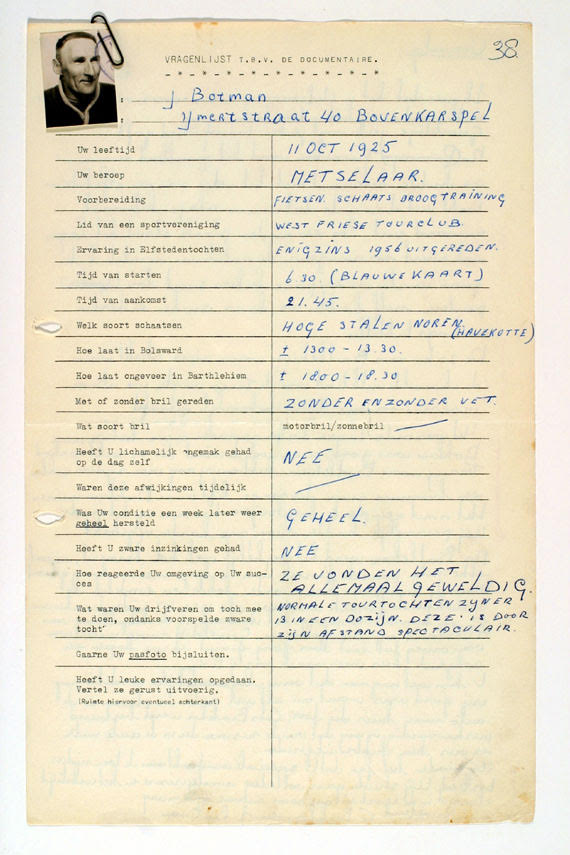 38
VRAGENLIJST T.B.V. DE DOCUMENTAIRE.
-*-*-*-*-*-*-*-*-*
: J Botman
: IJmertstraat 40 BOVENKARSPEL
Uw leeftijd 11 OCT 1925
Uw beroep METSELAAR.
Voorbereiding FIETSEN. SCHAATS DROOGTRAINING
Lid van een sportvereniging WEST FRIESE TOURCLUB.
Ervaring in Elfstedentochten ENIGZINS 1956 UITGEREDEN.
Tijd van starten 6.30 (BLAUWE KAART)
Tijd van aankomst 21.45.
Welk soort schaatsen HOGE STALEN NOREN
(HAVEKOTTE)
Hoe laat in Bolsward ± 1300 - 13.30.
Hoe laat ongeveer in Barthlehiem ± 1800 - 18.30
Met of zonder bril gereden ZONDER EN ZONDER VET.
Wat soort bril motorbril/zonnebril
Heeft U lichamelijk ongemak gehad
op de dag zelf NEE
Waren deze afwijkingen tijdelijk
Was Uw conditie een week later weer
geheel hersteld GEHEEL.
Heeft U zware inzinkingen gehad NEE
Hoe reageerde Uw omgeving op Uw suc-
ces ZE VONDEN HET
ALLEMAAL GEWELDIG.
Wat waren Uw drijfveren om toch mee
te doen, ondanks voorspelde zware
tocht NORMALE TOURTOCHTEN ZYN ER
13 IN EEN DOZIJN. DEZE IS DOOR
ZIJN AFSTAND SPECTACULAIR.
Gaarne Uw pasfoto bijsluiten.
Heeft U leuke ervaringen opgedaan.
Vertel ze gerust uitvoerig.
(Ruimte hiervoor eventueel achterkant)